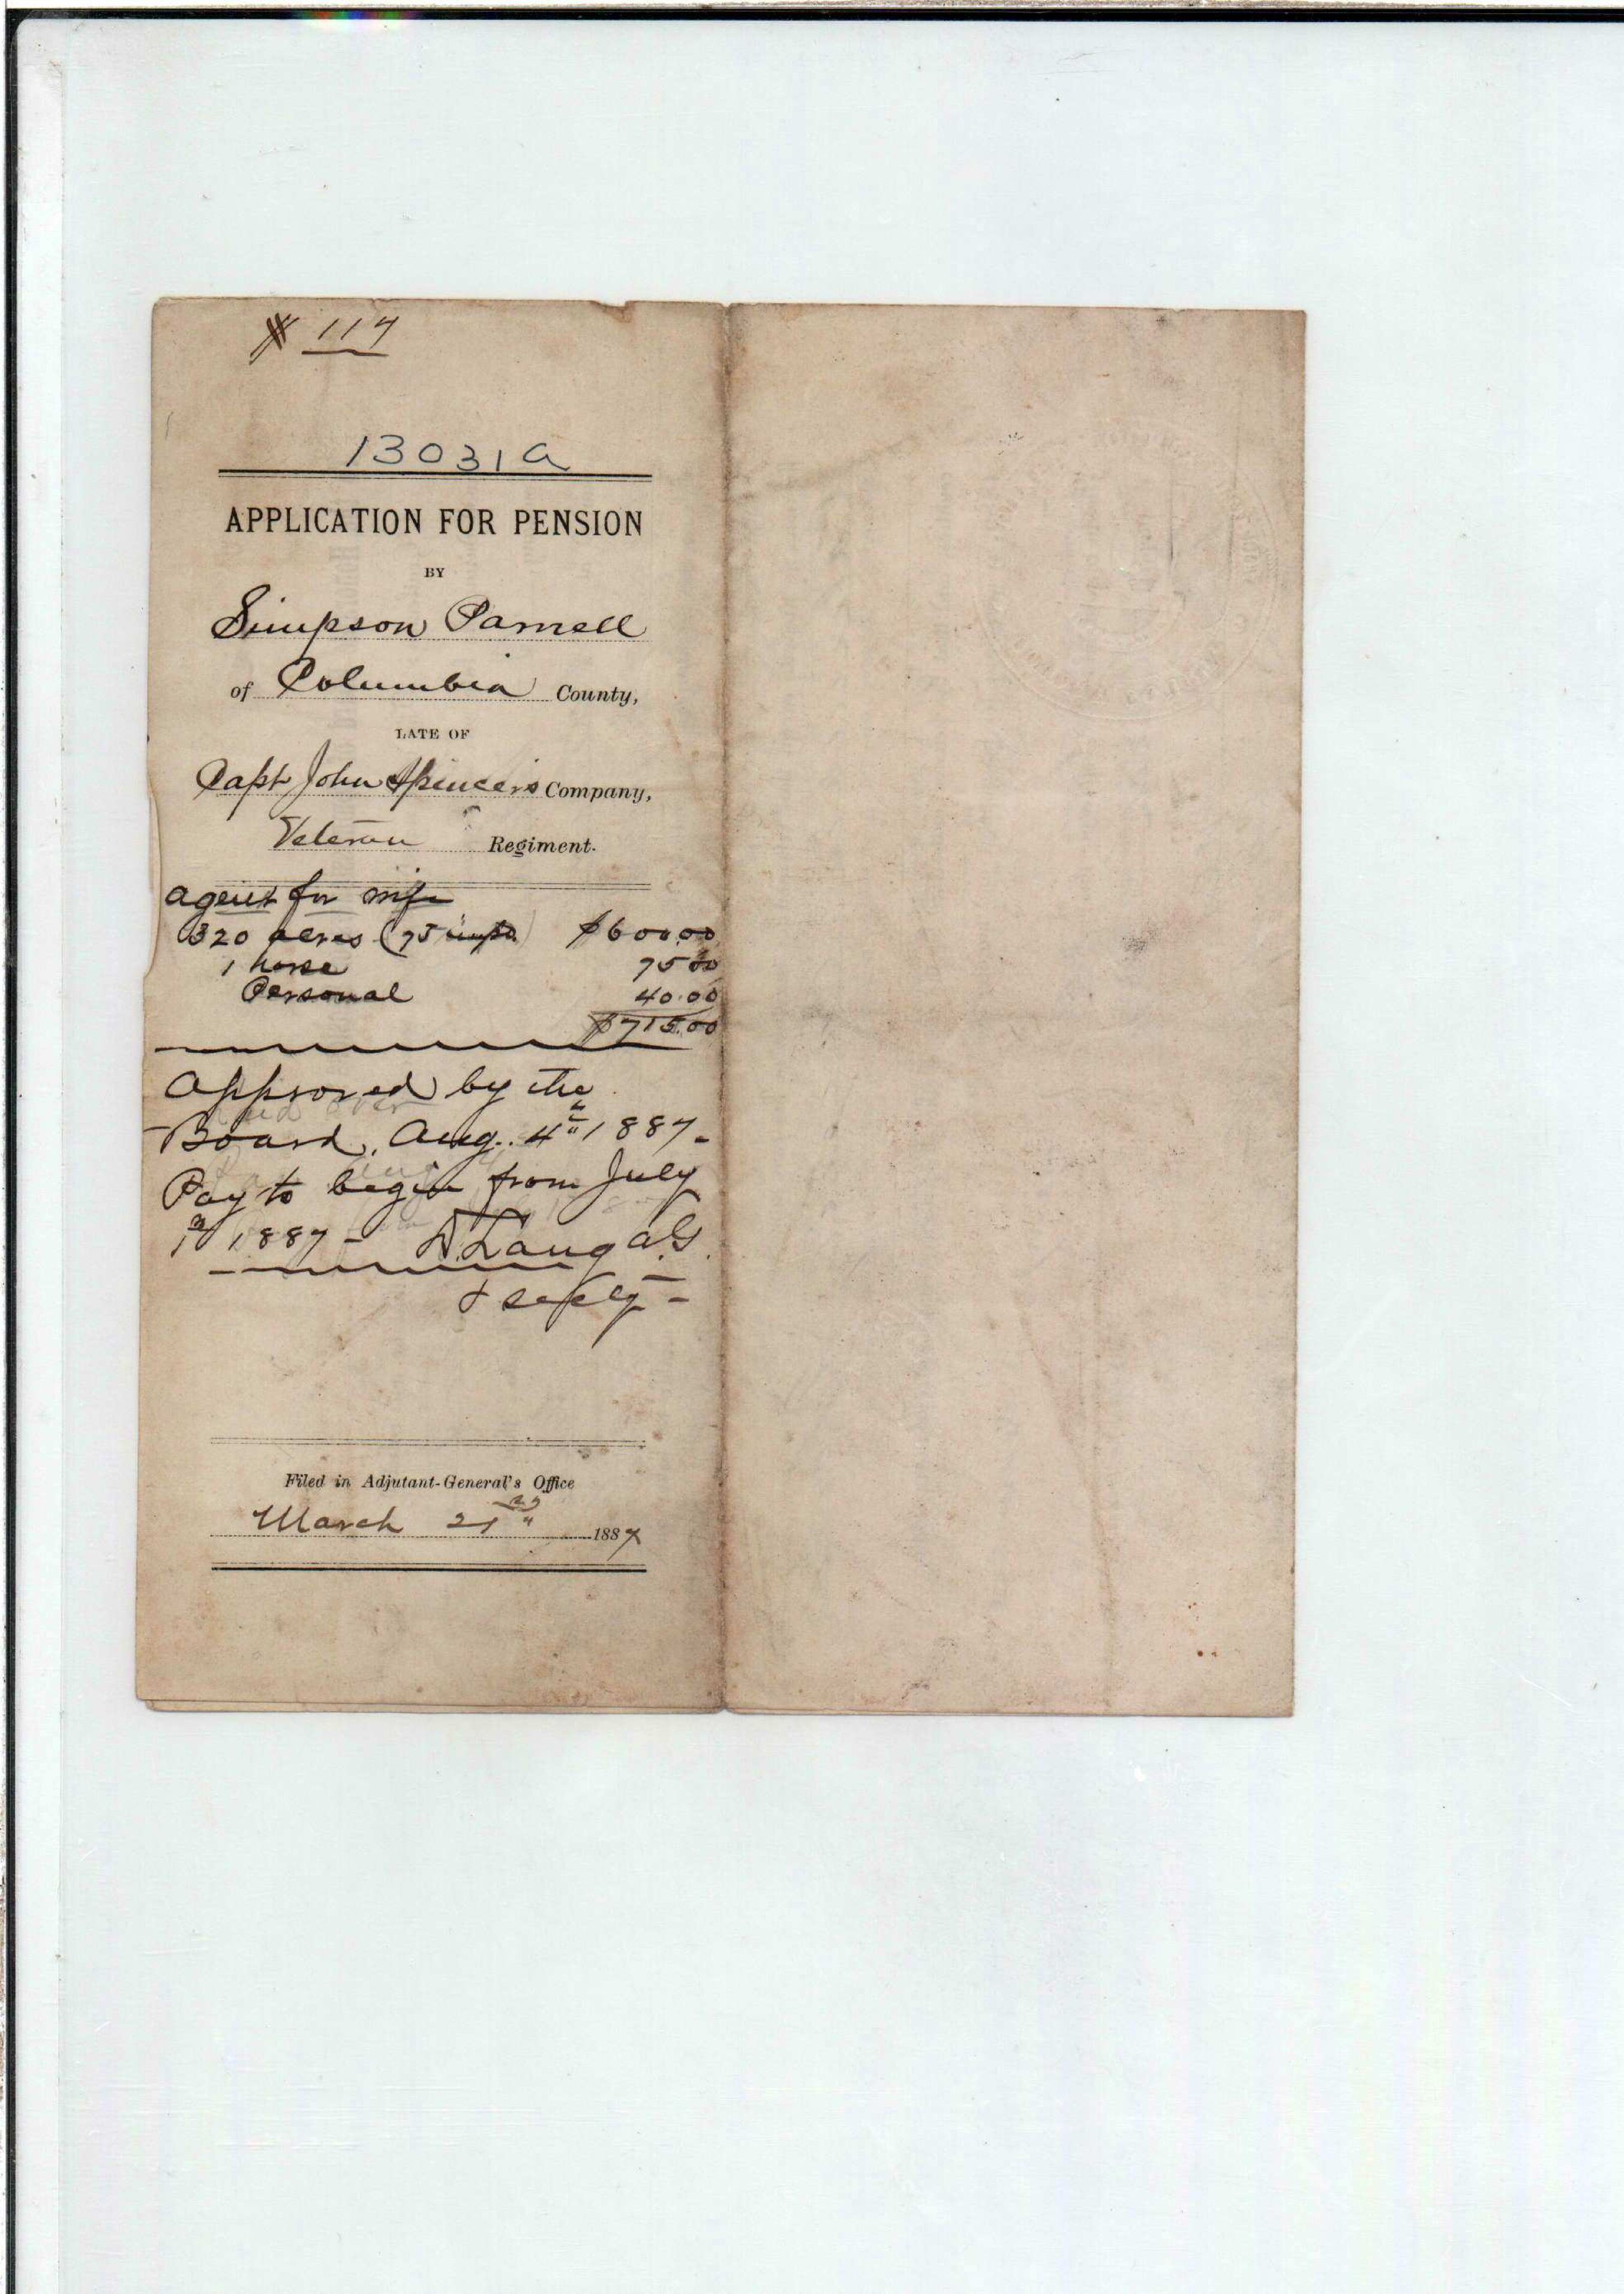 # 117
13031A
APPLICATION FOR PENSION
BY
Simpson Parnell
of Columbia County,
LATE OF
Capt John Spencers Company,
Veteran Regiment.
agent for wife
320 acres (75 impd) $600.00
1 horse 75 00
Personal 40.00
$715.00
Approved by the
Board, Aug. 4th 1887-
Pay to begin from July
1st 1887 - D. Lang A.G.
& secty -
Filed in Adjutant-General's Office
March 21st 1887